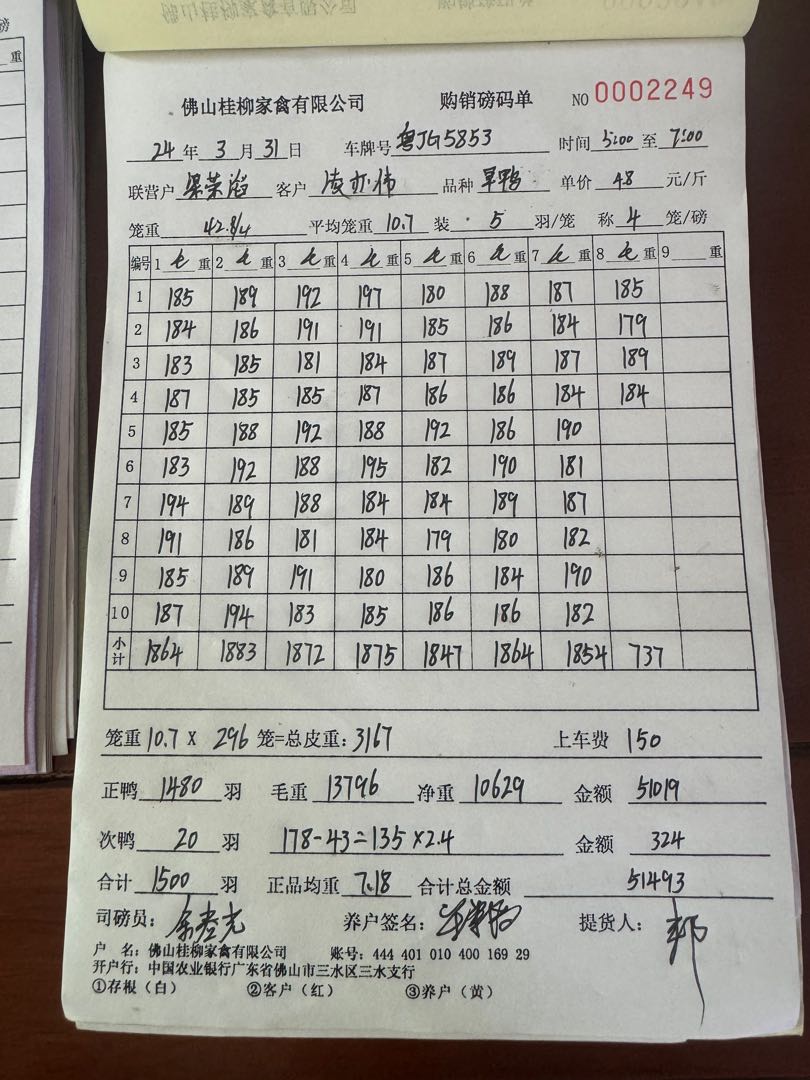 佛山桂柳家禽有限公司 购销磅码单 NO 0002249
24 年 3 月 31 日 车牌号 粤JG5853 时间 5:00 至 7:00
联营户 客户 凌亦伟 品种 旱鸭 单价 4.8 元/斤
笼重 42.8/4 平均笼重 10.7 装 5 羽/笼 称 4 笼/磅
编号 1 毛 重 2 毛 重 3 毛 重 4 毛 重 5 毛 重 6 毛 重 7 毛 重 8 毛 重 9 重
1 185 189 192 197 180 188 187 185
2 184 186 191 191 185 186 184 179
3 183 185 181 184 187 189 187 189
4 187 185 185 187 186 186 184 184
5 185 188 192 188 192 186 190
6 183 192 188 195 182 190 181
7 194 189 188 184 184 189 187
8 191 186 181 184 179 180 182
9 185 189 191 180 186 184 190
10 187 194 183 185 186 186 182
小计 1864 1883 1872 1875 1847 1864 1854 737
笼重 10.7 X 296 笼=总皮重: 3167 上车费 150
正鸭 1480 羽 毛重 13796 净重 10629 金额 51019
次鸭 20 羽 178-43=135×2.4 金额 324
合计 1500 羽 正品均重 7.18 合计总金额 51493
司磅员: 养户签名: 提货人:
户 名: 佛山桂柳家禽有限公司 账号: 444 401 010 400 169 29
开户行: 中国农业银行广东省佛山市三水区三水支行
①存根（白） ②客户（红） ③养户（黄）